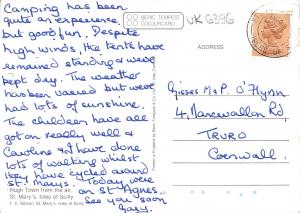 Camping has been
quite an experience,
but good fun. Despite
high winds, the tents have
remained standing & were
kept dry. The weather
has been varied but were
had lots of sunshine.
The children have all
got on really well &
Caroline & I have done
lots of walking whilst
they have cycled around
St. Marys. Today were
on St Agnes.
See you soon
Gary.
BERIC TEMPEST
COLOURCARD
UK 6396
ADDRESS
Misses M & P. O'Flynn
4, Nansavallon Rd
TRURO
Cornwall.
Hugh Town from the air,
St. Mary's, Isles of Scilly
F. E. Gibson, St. Mary's, Isles of Scilly